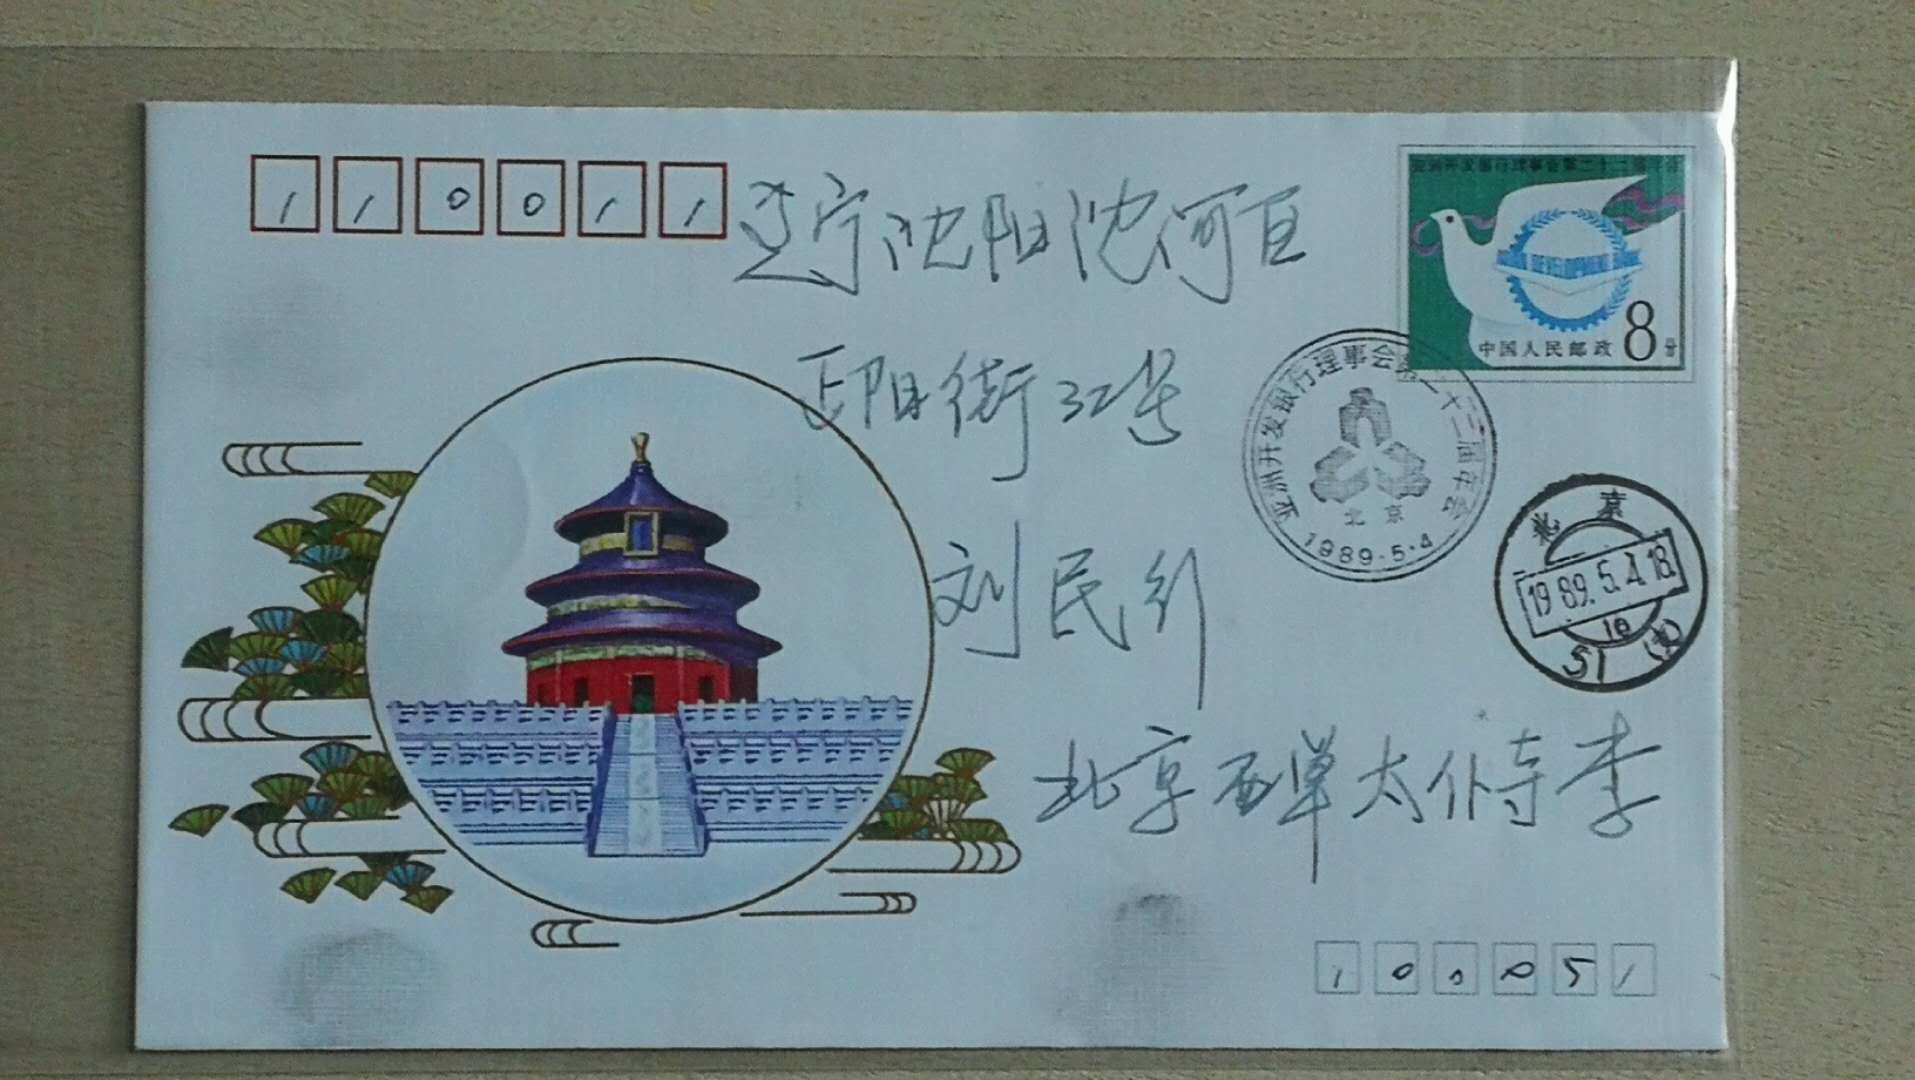 110011
辽宁沈阳沈河区
正阳街32号
刘民
北京西单太仆寺李
100051
亚洲开发银行理事会第二十二届年会
ASIAN DEVELOPMENT BANK
中国人民邮政 8分
亚洲开发银行理事会第二十二届年会
北京
1989.5.4
北京
1989.5.4.18
51